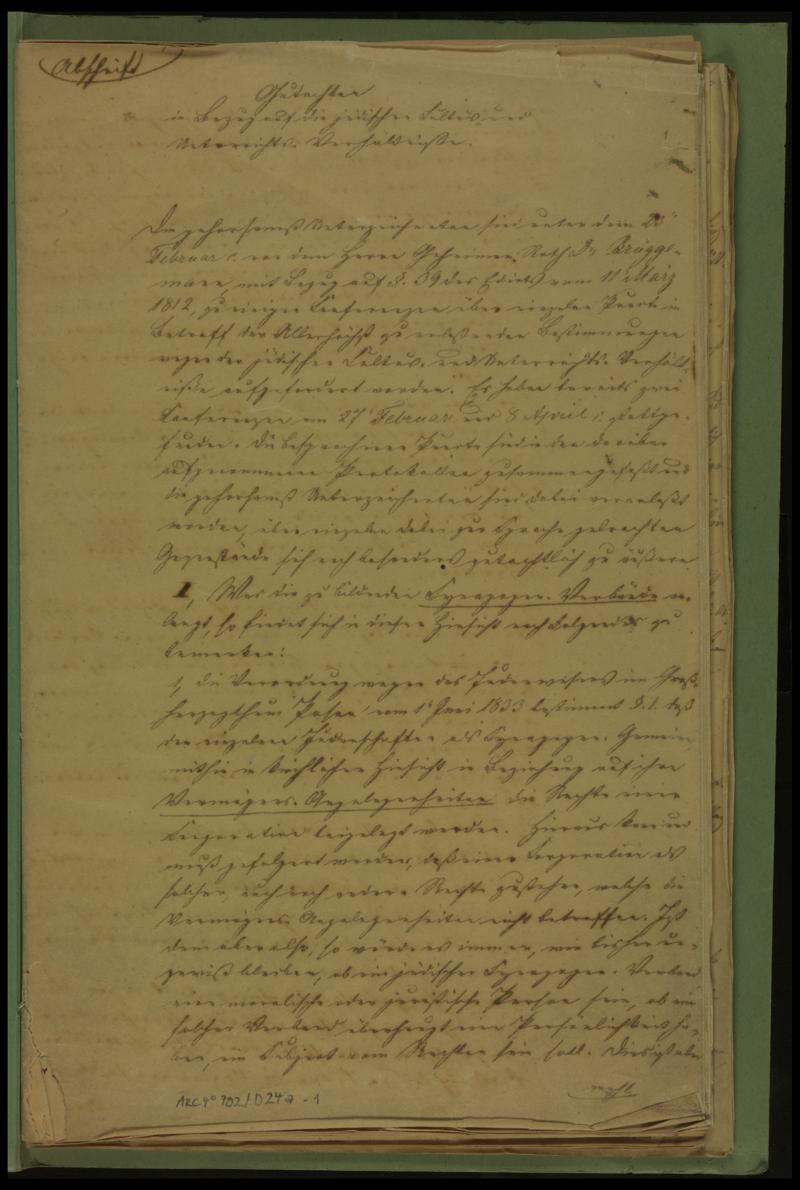 Abschrift
Gutachten
in Bezug auf die jüdischen Cultus und
Unterrichts-Verhältnisse.
Die gehorsamst Unterzeichneten sind unter dem 20t
Februar c. von dem Herrn Geheimen Rath Dr Brügge-
mann, mit Bezug auf §. 39 des Edicts vom 11 März
1812, zu einigen Conferenzen über einzelne Punkte in
Betreff der Allerhöchst zu erlassenden Bestimmungen
wegen der jüdischen Cultus- und Unterrichts-Verhält-
nisse aufgefordert worden. Es haben bereits zwei
Conferenzen am 27t Februar und 8 April c. stattge-
funden. Die besprochenen Punkte sind in den darüber
aufgenommenen Protokollen zusammengefaßt und
die gehorsamst Unterzeichneten sind dabei veranlaßt
worden, über einzelne dabei zur Sprache gebrachten
Gegenstände sich noch besonders gutachtlich zu äußern.
I, Was die zu bildenden Synagogen-Verbände an-
langt, so findet sich in dieser Hinsicht noch Folgendes zu
bemerken:
1, die Verordnung wegen des Judenwesens im Groß-
herzogthum Posen vom 1t Juni 1833 bestimmt §. 1. daß
den einzelnen Judenschaften als Synagogen-Gemeinen
mithin in kirchlicher Hinsicht in Beziehung auf ihre
Vermögens-Angelegenheiten die Rechte einer
Corporation beigelegt werden. Hieraus kann und
muß gefolgert werden, daß einer Corporation als
solcher, auch noch andere Rechte zustehen, welche die
Vermögens-Angelegenheiten nicht betreffen. Ist
dem aber also, so würde es immer, wie bisher un-
gewiß bleiben, ob ein jüdischer Synagogen-Verband
eine moralische oder juristische Person sein, ob ein
solcher Verband überhaupt eine Persönlichkeit ha-
ben, ein Subject von Rechten sein soll. Dies ist aber
wohl
ARC 4° 792/D24a-1